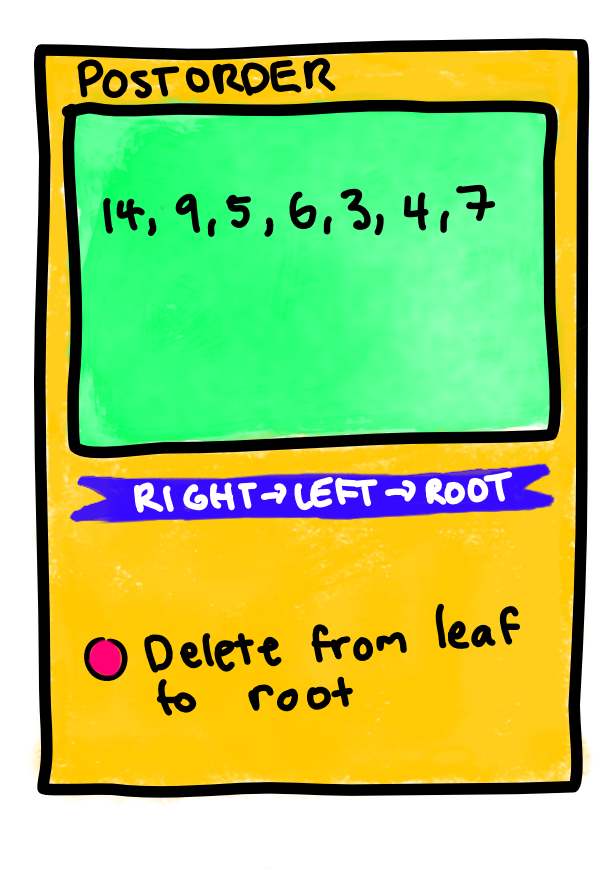 POSTORDER
14, 9, 5, 6, 3, 4, 7
RIGHT→LEFT→ROOT
Delete from leaf
to root